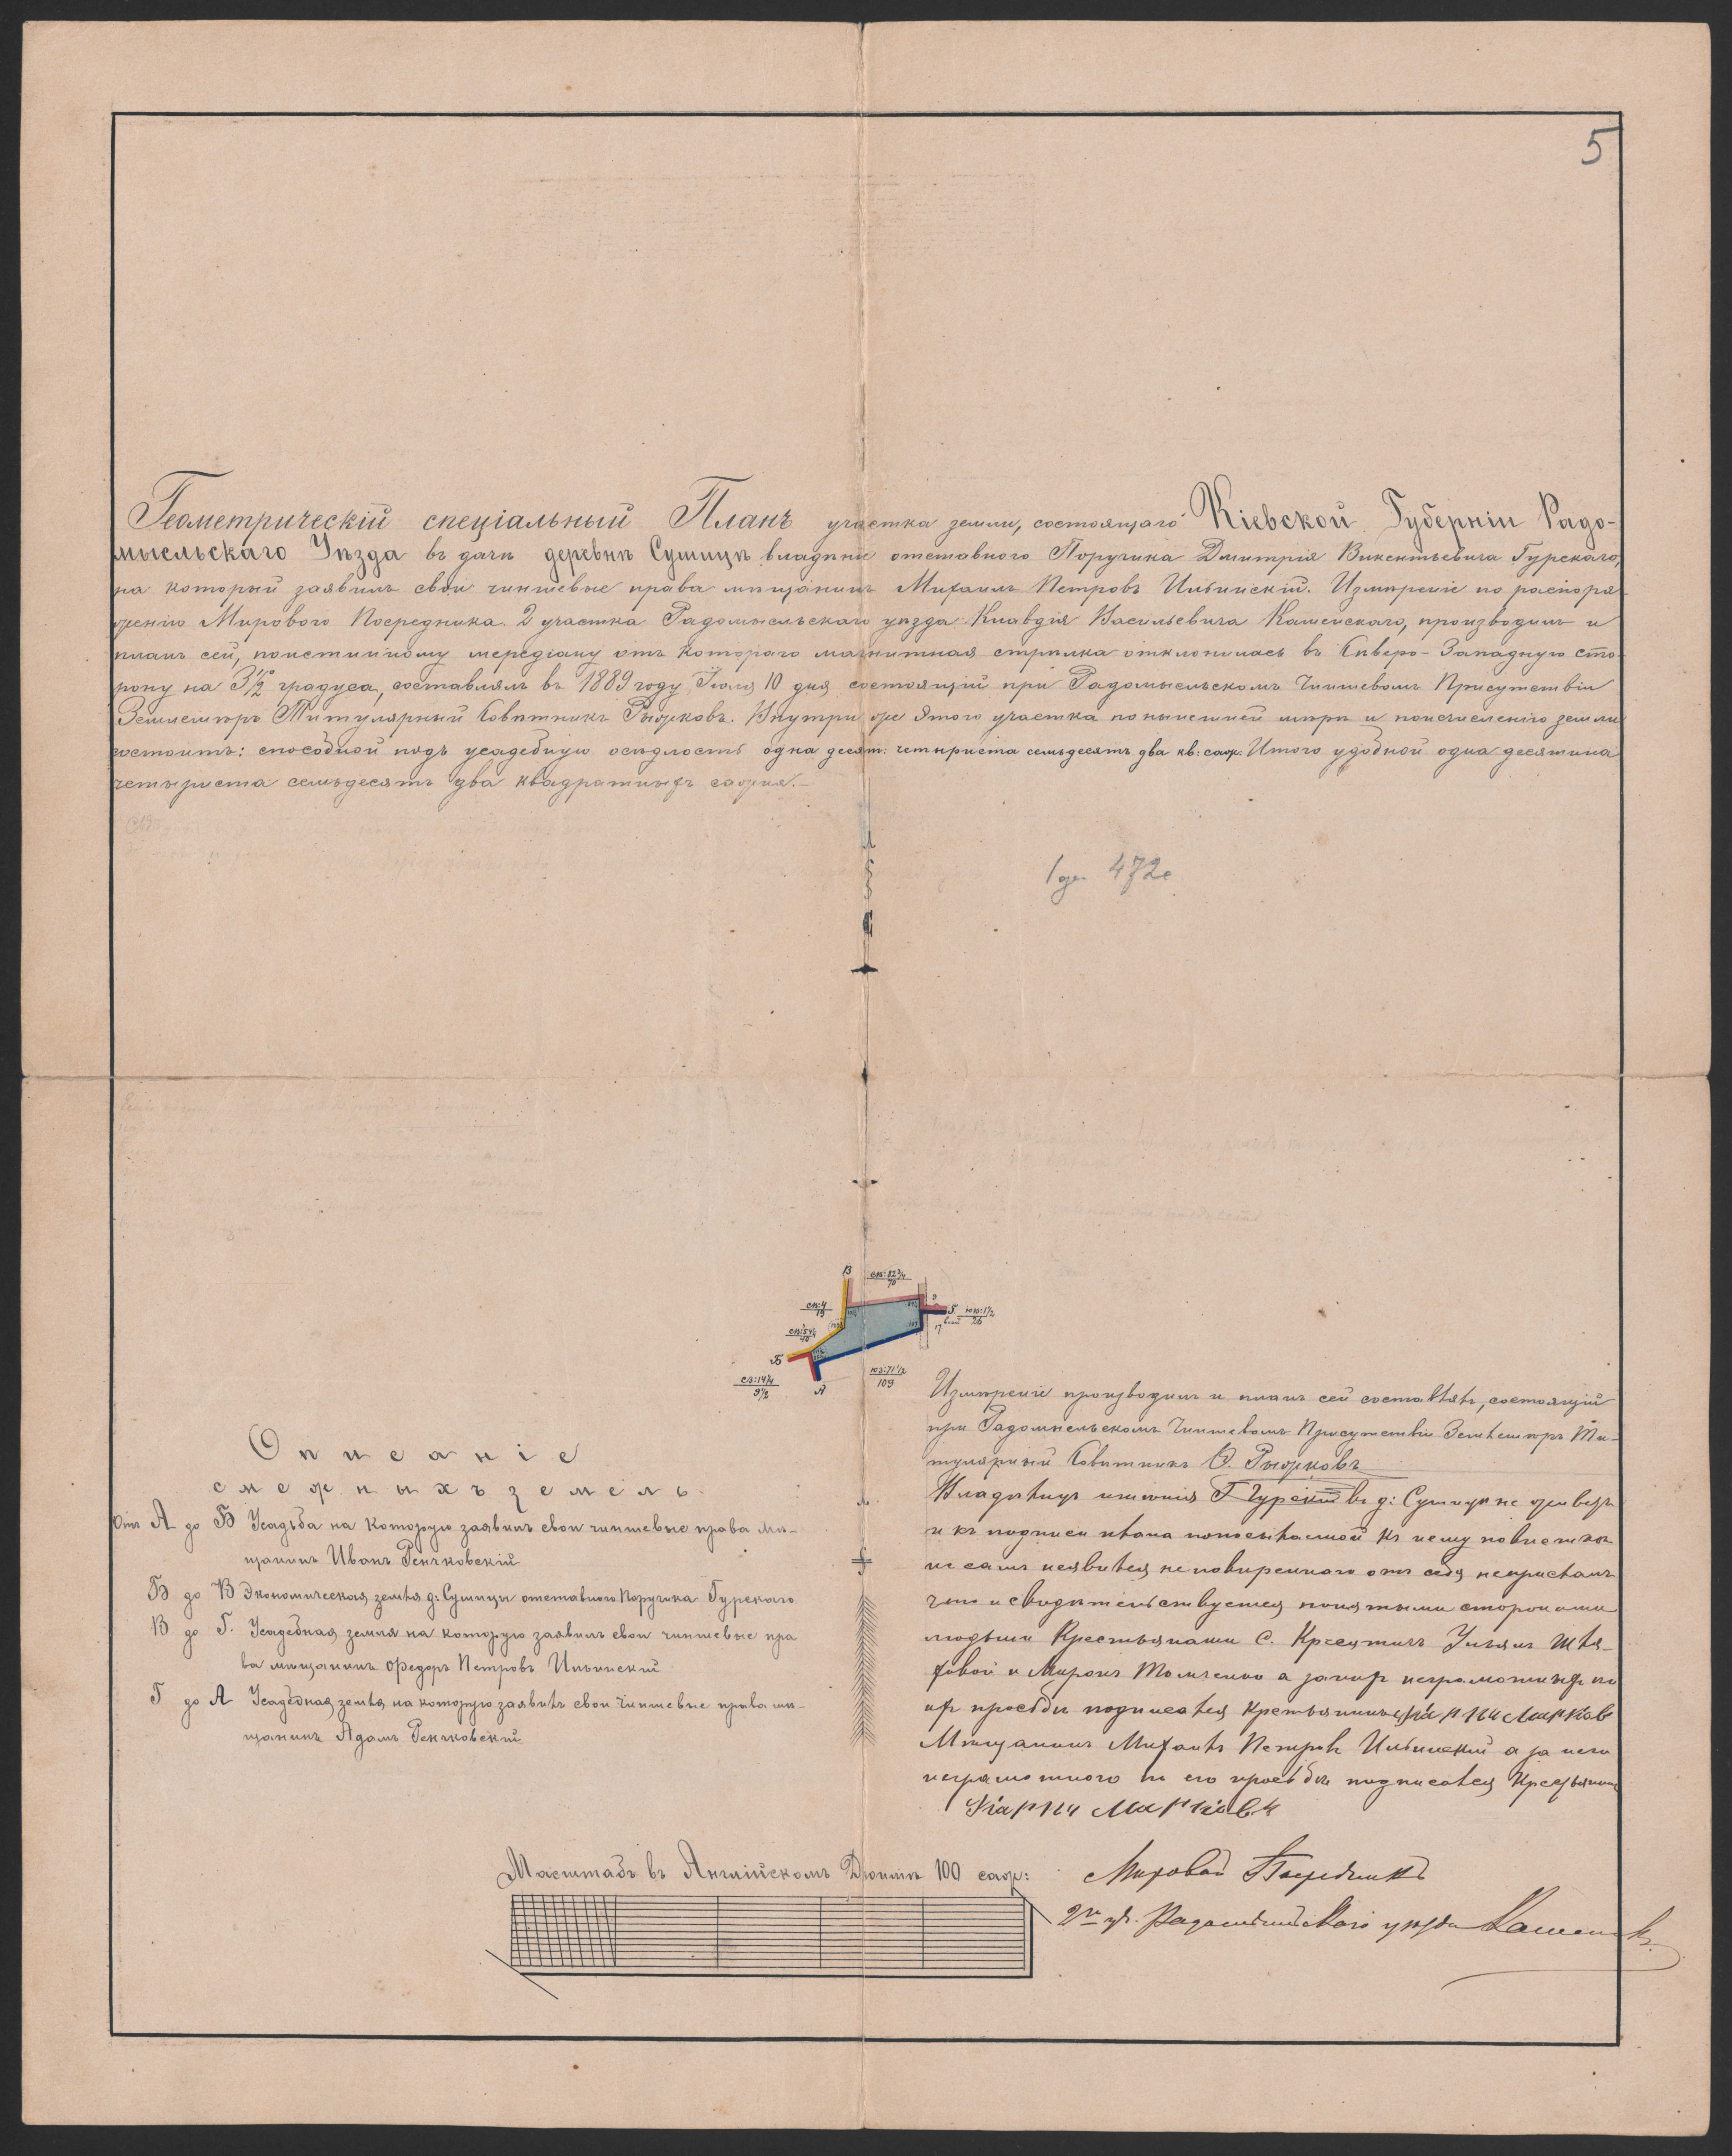 5
Геометрическій спеціальный Планъ участка земли, состоящаго Кіевской Губерніи Радо-
мысльскаго Уѣзда въ дачѣ деревнѣ Сушицѣ владѣніе отставного Поручика Дмитрія Викентьевича Гурскаго,
на который заявилъ свои чиншевые права мѣщанинъ Михаилъ Петровъ Ильинскій. Измѣреніе по распоря-
женію Мирового Посредника 2 участка Радомысльскаго уѣзда Клавдія Васильевича Каменскаго, производилъ и
планъ сей, поистинному меридіану отъ котораго магнитная стрѣлка отклонилась въ Сѣверо-Западную сто-
рону на 3 1/2° градуса, составлялъ въ 1889 году Іюля 10 дня состоящій при Радомысльскомъ Чиншевомъ Присутствіи
Землемѣръ Титулярный Совѣтникъ Рыжковъ. Внутри же этого участка понынешней мѣрѣ и поисчисленію земли
состоитъ: способной подъ усадебную осѣдлость одна десят: четыриста семьдесятъ два кв: саж: Итого удобной одна десятина
четыриста семьдесятъ два квадратныхъ сажня.-
1 де 472с
В
СВ:82 3/4
70
СВ:4
19
СВ:54 1/2
40
Б
СЗ:14 1/4
9 1/2
А
ЮЗ:71 1/2
109
Г
17
ЮВ:1 1/2
26
Описаніе
смежныхъ земель.
Отъ А до Б Усадьба на которую заявилъ свои чиншевые права мѣ-
щанинъ Иванъ Генчковскій
Б до В Экономическая земля д: Сушицы отставного Поручика Гурскаго
В до Г. Усадебная земля на которую заявилъ свои чиншевые пра
ва мѣщанинъ Федоръ Петровъ Ильинскій
Г до А Усадебная земля на которую заявилъ свои чиншевые права мѣ-
щанинъ Адамъ Генчковскій
Измѣреніе производилъ и планъ сей составлялъ, состоящій
при Радомысльскомъ Чиншевомъ Присутствіи Землемѣръ Ти-
тулярный Совѣтникъ Рыжковъ
Владѣлецъ имѣнія Гурскій въ д: Сушицѣ не живетъ
и къ подписи плана посылаемой къ нему повѣсткой
не самъ неявился не повѣреннаго отъ себя неприслалъ
что и свидѣтельствуется понятыми сторонами
людьми Крестьянами С. Ульянъ
и Миронъ а за нихъ неграмотныхъ по
ихъ просьбѣ подписался крестьянинъ Карпъ Марков
Мѣщанинъ Михаилъ Петровъ Ильинскій а за него
неграмотного по его просьбѣ подписался Крестьянинъ
Карпъ Марковъ
Масштабъ въ Англійскомъ Дюймѣ 100 саж:
Мировой Посредникъ
2го уч. Радомысльскаго уѣзда Каменск